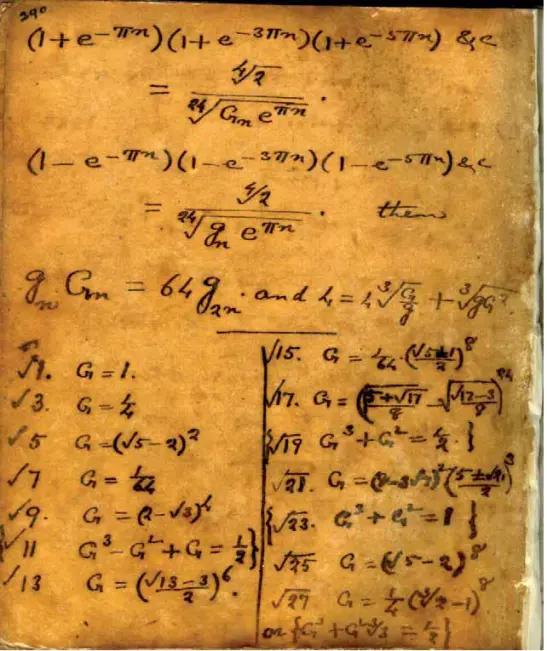 290
(1+e^{-πn})(1+e^{-3πn})(1+e^{-5πn}) &c
= ∜2 / ²⁴√(G_n e^{πn}) .
(1-e^{-πn})(1-e^{-3πn})(1-e^{-5πn}) &c
= ∜2 / ²⁴√(g_n e^{πn}) . then
g_n G_n = 64 g_{2n}. and
√1. G = 1.
√3. G = 1/4
√5 G = (√5-2)^2
√7 G = 1/64
√9. G = (2-√3)^4
√11 G^3 - G^2 + G = 1/2}
√13 G = ((√13-3)/2)^6.
√15. G = 1/64 · 
√17. G = (√((5+√17)/8) - √((√17-3)/8))^24
{√19 G^3 + G^2 = 1/2.}
√21.
{√23. G^3 + G^2 = 1 }
√25 G = (√5-2)^8
√27 G = 1/4 (∛2-1)^8
or